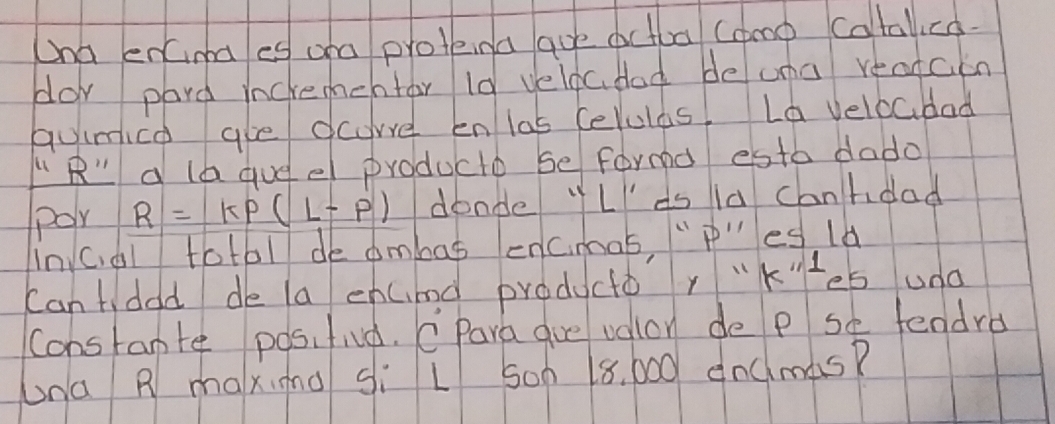 Una encima es una proteina que actua como catalica-
dor para incrementar la velocidad de una reaccion
quimica que ocurre en las celulas. La velocidad
"R" a la que el producto se forma esta dado
por R = KP(L-P) donde "L" es la cantidad
inicial total de ambas encimas, "P" es la
cantidad de la encima producto y "K" es una
constante positiva. ¿Para que valor de P se tendra
una R maxima si L son 18.000 encimas?